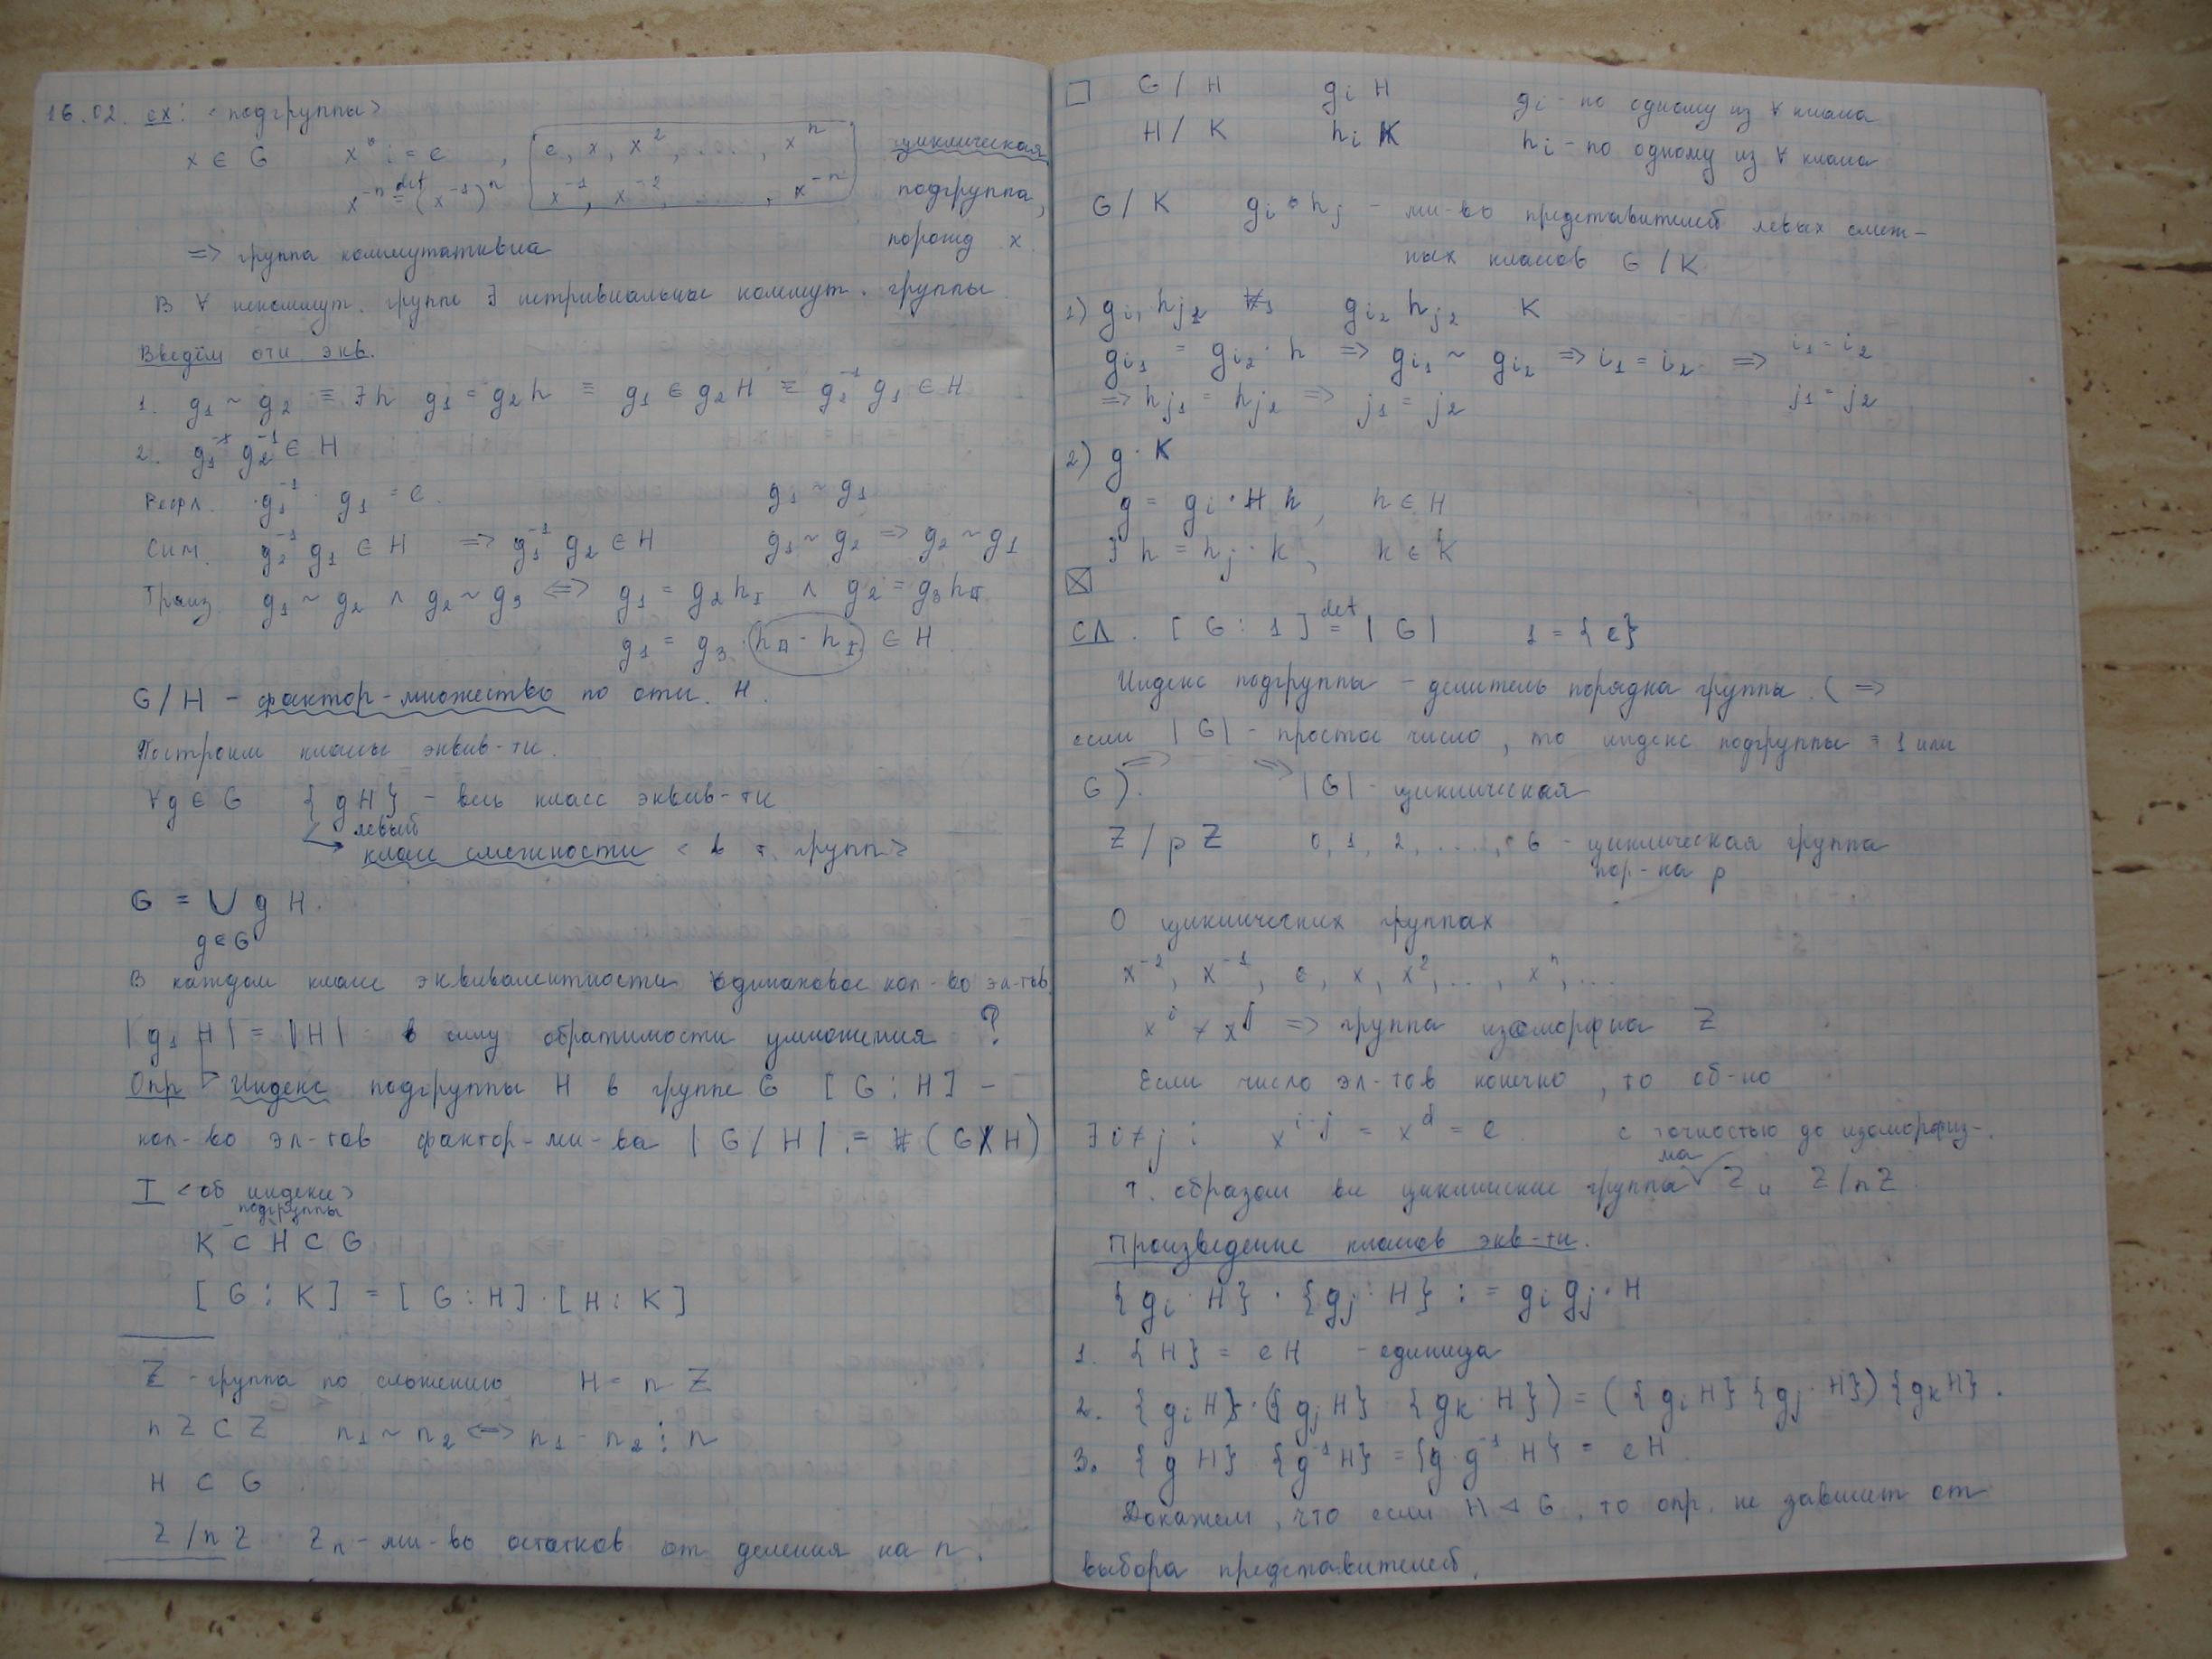 16.02. ex: <подгруппы>
x ∈ G x⁰ := e , e, x, x², ...., xⁿ циклическая
x⁻ⁿ def= (x⁻¹)ⁿ x⁻¹, x⁻², ....., x⁻ⁿ подгруппа,
порожд x.
=> группа коммутативна
В ∀ некоммут. группе ∃ нетривиальные коммут. группы
Введём отн. экв.
1. g₁ ~ g₂ ≡ ∃h g₁ = g₂h ≡ g₁ ∈ g₂H ≡ g₂⁻¹ g₁ ∈ H
2. g₁ g₂⁻¹ ∈ H
Рефл. g₁⁻¹ · g₁ = e. g₁ ~ g₁
Сим. g₂⁻¹ g₁ ∈ H => g₁⁻¹ g₂ ∈ H g₁ ~ g₂ => g₂ ~ g₁
Транз. g₁ ~ g₂ ∧ g₂ ~ g₃ <=> g₁ = g₂h_I ∧ g₂ = g₃h_II
g₁ = g₃ · h_II · h_I ∈ H.
G/H – фактор-множество по отн. H.
Построим классы эквив-ти.
∀g ∈ G {gH} – весь класс эквив-ти
левый
класс смежности < в т. групп>
G = ∪ g H.
g∈G
В каждом классе эквивалентности одинаковое кол-во эл-тов
|g₁ H| = |H| в силу обратимости умножения ?
Опр Индекс подгруппы H в группе G [G : H] –
кол-во эл-тов фактор-мн-ва |G/H| = #(G/H)
T <об индексе>
подгруппы
K ⊂ H ⊂ G
[G : K] = [G : H] · [H : K]
Z – группа по сложению H = n Z
n Z ⊂ Z n₁ ~ n₂ <=> n₁ - n₂ ⋮ n
H ⊂ G
Z/nZ Zₙ – мн-во остатков от деления на n.
□ G / H gᵢ H gᵢ – по одному из ∀ класса
H / K hᵢ K hᵢ – по одному из ∀ класса
G / K gᵢ ∘ hⱼ – мн-во представителей левых смеж-
ных классов G / K
1) gᵢ₁ hⱼ₁ gᵢ₂ hⱼ₂ K
gᵢ₁ = gᵢ₂ · h => gᵢ₁ ~ gᵢ₂ => i₁ = i₂ => i₁ = i₂
=> hⱼ₁ = hⱼ₂ => j₁ = j₂ j₁ = j₂
2) g · K
g = gᵢ · h, h ∈ H
∃ h = hⱼ · k, k ∈ K
⊠
Сл. [G : 1] def= |G| 1 = {e}
Индекс подгруппы – делитель порядка группы. (=>
если |G| – простое число, то индекс подгруппы = 1 или
G). => => |G| – циклическая
Z / pZ 0, 1, 2, ...., 6 – циклическая группа
пор-ка p
О циклических группах
x⁻², x⁻¹, e, x, x², ..., xⁿ, ....
xⁱ ≠ xʲ => группа изоморфна Z
Если число эл-тов конечно, то об-но
∃ i ≠ j : xⁱ⁻ʲ = xᵈ = e с точностью до изоморфиз-
ма
Т. образом все циклические группы Z и Z/nZ.
Произведение классов экв-ти.
{gᵢ · H} · {gⱼ · H} := gᵢ gⱼ · H
1. {H} = eH – единица
2. {gᵢH} · ({gⱼH} · {gₖ · H}) = ({gᵢH} {gⱼ · H}) {gₖH}.
3. {gH} {g⁻¹H} = {g · g⁻¹ H} = eH.
Докажем, что если H ⊲ G, то опр. не зависит от
выбора представителей.